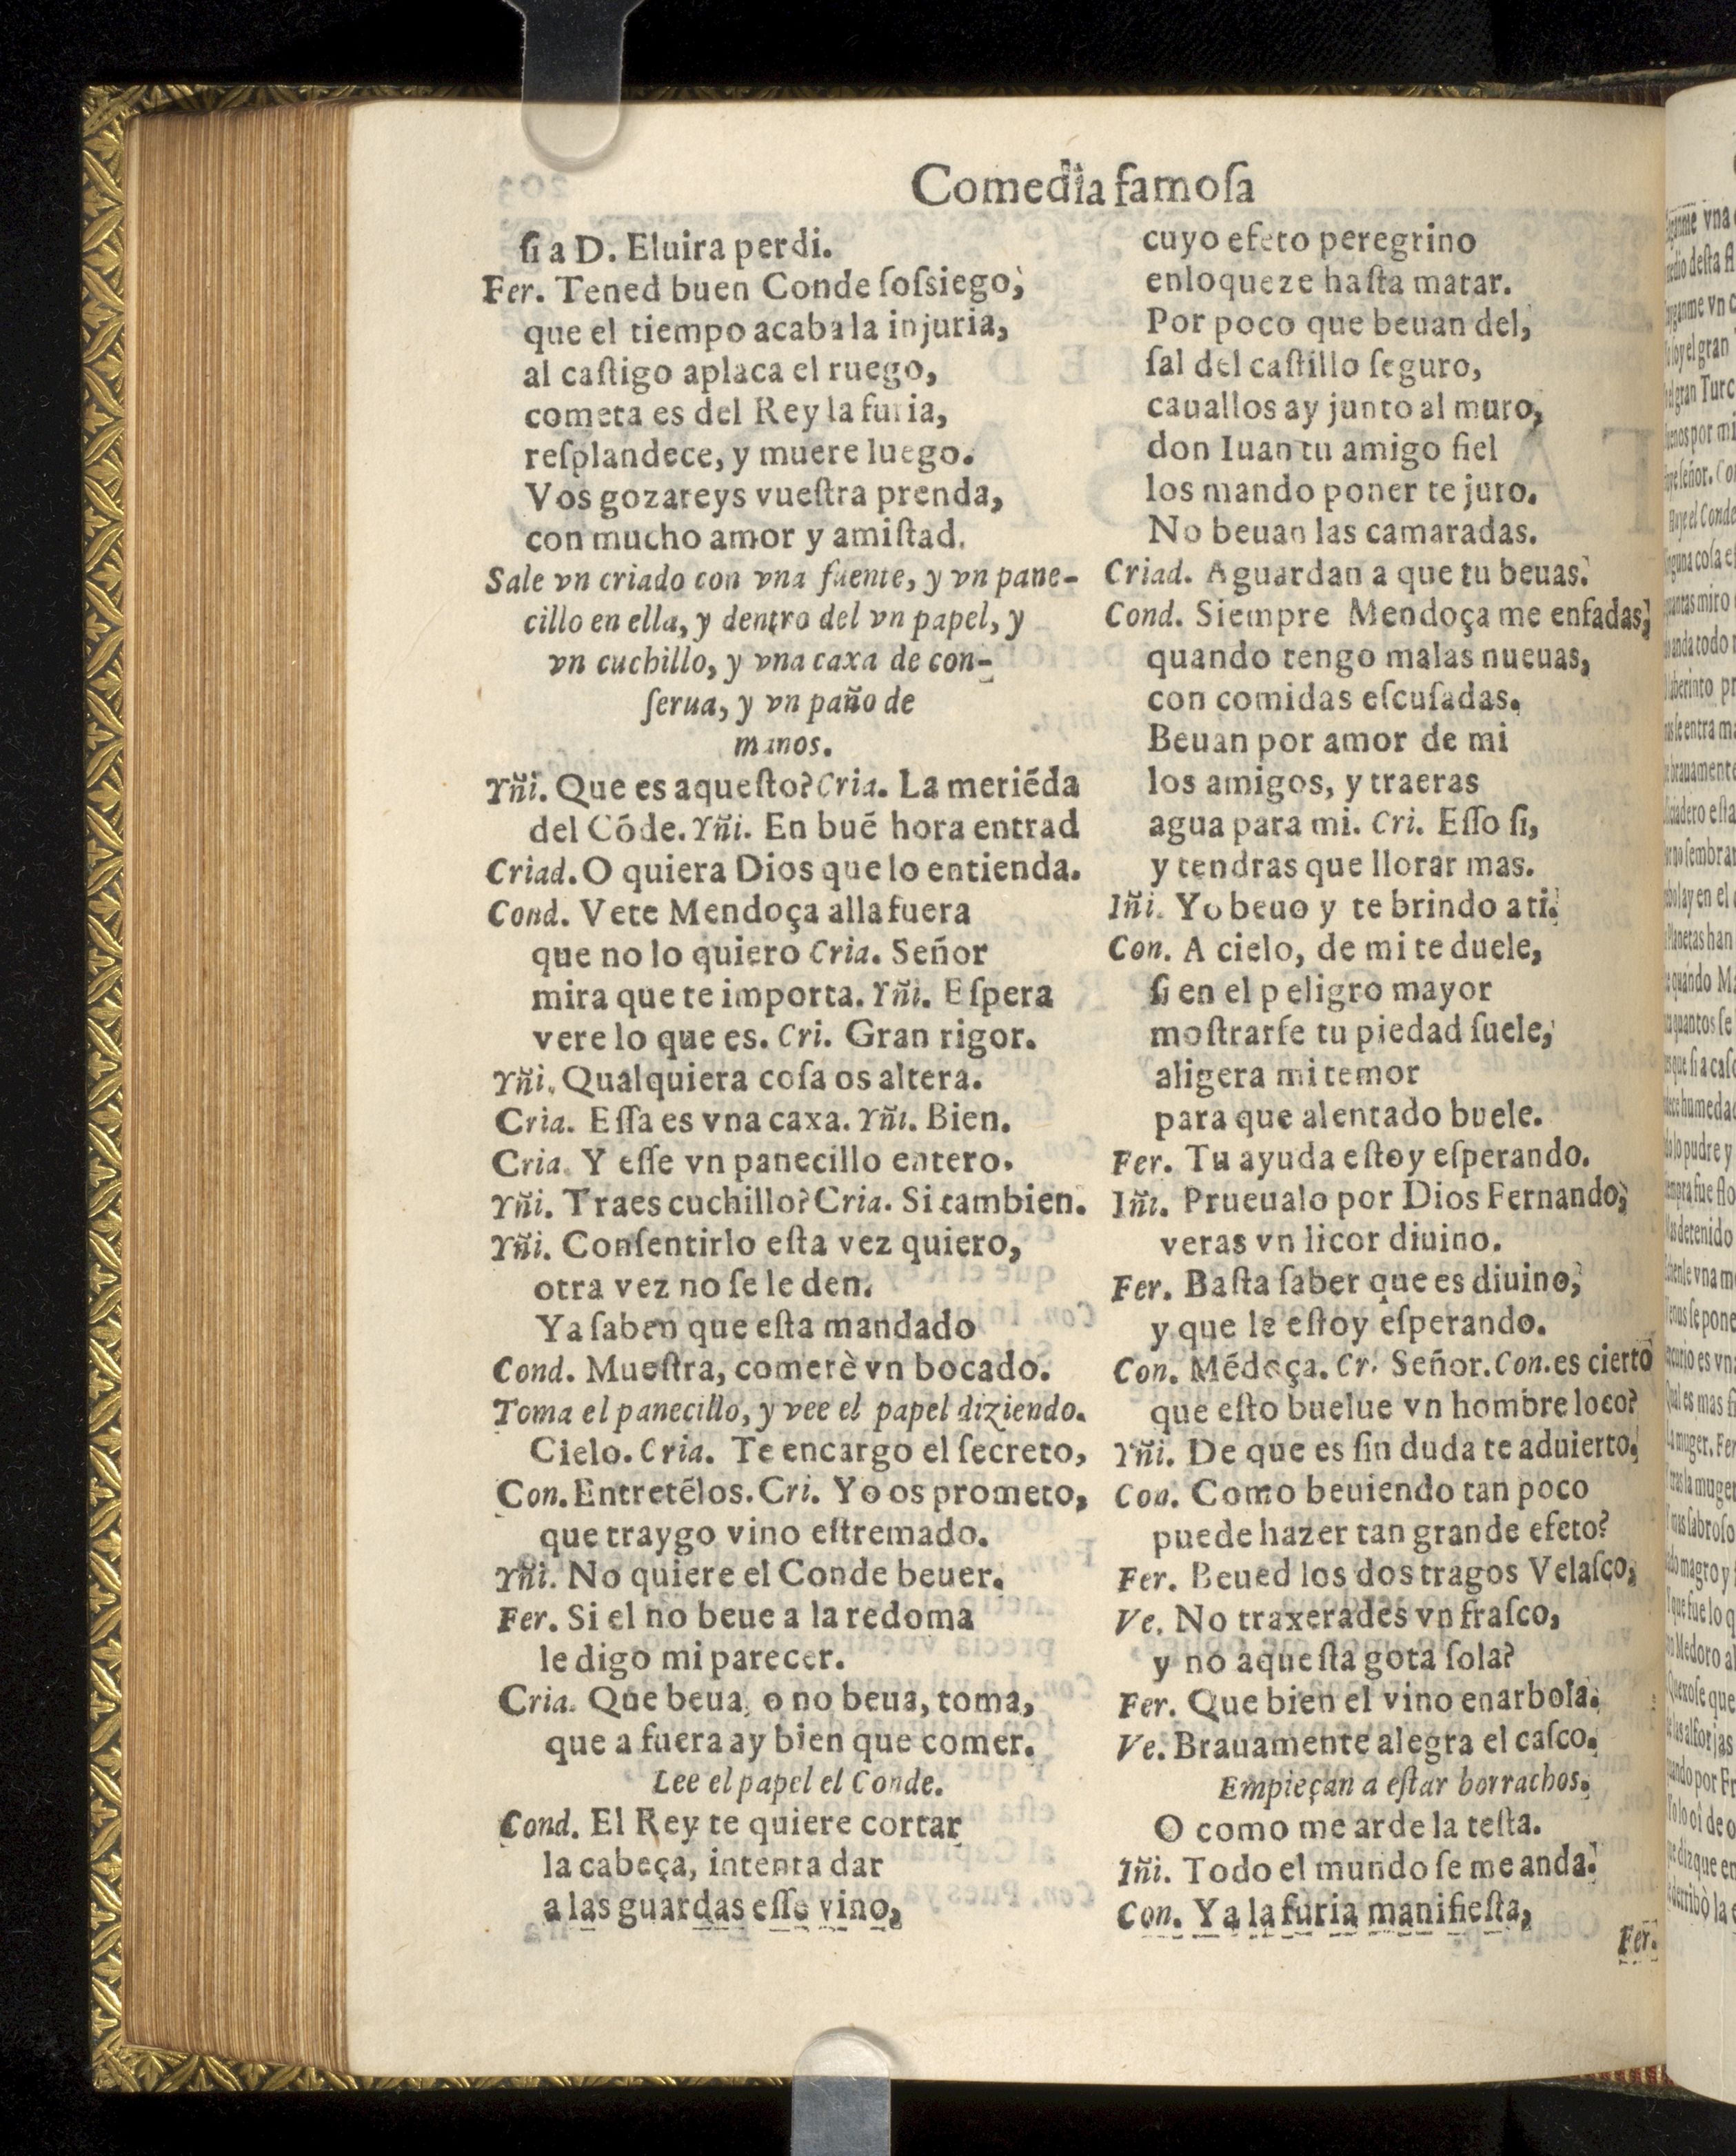 Comedia famoſa
ſi a D. Eluira perdi.
Fer. Tened buen Conde ſoſsiego,
que el tiempo acaba la injuria,
al caſtigo aplaca el ruego,
cometa es del Rey la furia,
reſplandece, y muere luego.
Vos gozareys vueſtra prenda,
con mucho amor y amiſtad.
Sale vn criado con vna fuente, y vn pane-
cillo en ella, y dentro del vn papel, y
vn cuchillo, y vna caxa de con-
ſerua, y vn paño de
manos.
Yñi. Que es aqueſto? Cria. La meriēda
del Cōde. Yñi. En buē hora entrad
Criad. O quiera Dios que lo entienda.
Cond. Vete Mendoça alla fuera
que no lo quiero Cria. Señor
mira que te importa. Yñi. Eſpera
vere lo que es. Cri. Gran rigor.
Yñi. Qualquiera coſa os altera.
Cria. Eſſa es vna caxa. Yñi. Bien.
Cria. Y eſſe vn panecillo entero.
Yñi. Traes cuchillo? Cria. Si tambien.
Yñi. Conſentirlo eſta vez quiero,
otra vez no ſe le den.
Ya ſaben que eſta mandado
Cond. Mueſtra, comerè vn bocado.
Toma el panecillo, y vee el papel diziendo.
Cielo. Cria. Te encargo el ſecreto,
Con. Entretēlos. Cri. Yo os prometo,
que traygo vino eſtremado.
Yñi. No quiere el Conde beuer.
Fer. Si el no beue a la redoma
le digo mi parecer.
Cria. Que beua, o no beua, toma,
que a fuera ay bien que comer.
Lee el papel el Conde.
Cond. El Rey te quiere cortar
la cabeça, intenta dar
a las guardas eſſe vino,
cuyo efeto peregrino
enloqueze haſta matar.
Por poco que beuan del,
ſal del caſtillo ſeguro,
cauallos ay junto al muro,
don Iuan tu amigo fiel
los mando poner te juro.
No beuan las camaradas.
Criad. Aguardan a que tu beuas.
Cond. Siempre Mendoça me enfadas,
quando tengo malas nueuas,
con comidas eſcuſadas.
Beuan por amor de mi
los amigos, y traeras
agua para mi. Cri. Eſſo ſi,
y tendras que llorar mas.
Iñi. Yo beuo y te brindo a ti.
Con. A cielo, de mi te duele,
ſi en el peligro mayor
moſtrarſe tu piedad ſuele,
aligera mi temor
para que alentado buele.
Fer. Tu ayuda eſtoy eſperando.
Iñi. Prueualo por Dios Fernando,
veras vn licor diuino.
Fer. Baſta ſaber que es diuino,
y que le eſtoy eſperando.
Con. Mēdoça. Cr. Señor. Con. es cierto
que eſto buelue vn hombre loco?
Yñi. De que es ſin duda te aduierto.
Con. Como beuiendo tan poco
puede hazer tan grande efeto?
Fer. Beued los dos tragos Velaſco,
Ve. No traxerades vn fraſco,
y no aqueſta gota ſola?
Fer. Que bien el vino enarbola.
Ve. Brauamente alegra el caſco.
Empieçan a eſtar borrachos.
O como me arde la teſta.
Iñi. Todo el mundo ſe me anda.
Con. Ya la furia manifieſta,
Fer.